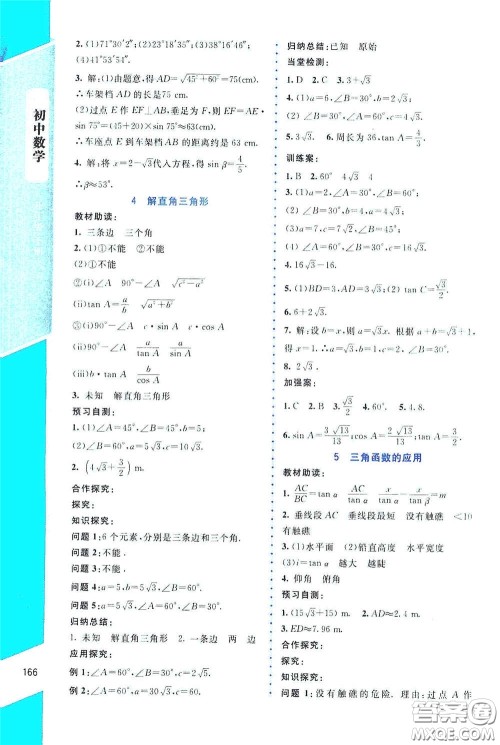 初中数学
2. (1)71°30′30″ (2)23°18′35″ (3)38°16′30″
(4)41°53′54″.
3. 解:(1)由题意,得 AD=√(45²+60²)=75(cm).
∴车架档 AD 的长是 75 cm.
(2)过点 E 作 EF⊥AB,垂足为 F,则 EF=AE·
sin 75°=(45+20)×sin 75°≈63(cm).
∴车座点 E 到车架档 AB 的距离约是 63 cm.
4. 解:将 x=2-√3 代入方程,得 sin β=4/5.
∴β≈53°.
4 解直角三角形
教材助读:
1. 三条边 三个角
2. (1)①不能 ②不能
(2)①不能
②(i)∠A 90°-∠A √(c²-a²)
(ii)tan A=a/b √(a²+b²)
(i)90°-∠A c·sin A c·cos A
(ii)90°-∠A a/tan A a/sin A
(iii)b·tan A b/cos A
3. 未知 解直角三角形
预习自测:
1. (1)∠A=45°,∠B=45°,b=20.
(2)∠B=60°,a=5,b=5√3.
2. (4√3+3/2) m.
合作探究:
探究:
知识探究:
问题 1:6 个元素,分别是三条边和三个角.
问题 2:不能.
问题 3:不能.
问题 4:a=5,b=5√3,∠B=60°.
问题 5:a=5√3,∠A=60°,∠B=30°.
归纳总结:
1. 未知 解直角三角形 2. 一条边 两 边
应用探究:
例 1:∠A=60°,∠B=30°,c=2√5.
例 2:∠A=60°,a=30√3,c=60.
166
归纳总结:已知 原始
当堂检测:
1. D 2. C 3. 3+√3
4. (1)a=6,∠B=30°,∠A=60°.
(2)∠B=30°,∠A=60°,c=6.
5. 3√3. 6. 周长为 36,tan A=4/3.
训练案:
1. B 2. C
3. (1)∠A=60°,∠B=30°,a=6√3.
(2)∠B=30°,a=7√3,c=14.
(3)a=7,c=7√2,∠B=45°.
(4)a=c=16√3,∠A=60°.
4. 16√3-16.
5. (1)BD=3,CD=2. (2)tan C=√3/2.
6. 6+2√3.
7. 解:设 b=x,则 a=√3x. 根据 a+b=√3+1,
得 x=1. ∴a=√3,b=1,c=2,∠A=60°,
∠B=30°.
加强案:
1. C 2. B 3. √3 4. 60°. 5. 4.8.
6. sin A=3√13/13,cos A=2√13/13,tan A=3/2.
5 三角函数的应用
教材助读:
2. 垂线段 垂线段最短 没有触礁 <10
有触礁
3. (1)水平面 (2)铅直高度 水平宽度
(3)i=tan α 越大 越陡
4. 仰角 俯角
预习自测:
1. (15√3+15) m. 2. AD≈2.4 m.
3. ED≈7.96 m.
合作探究:
探究:
知识探究:
问题 1:没有触礁的危险. 理由:过点 A 作